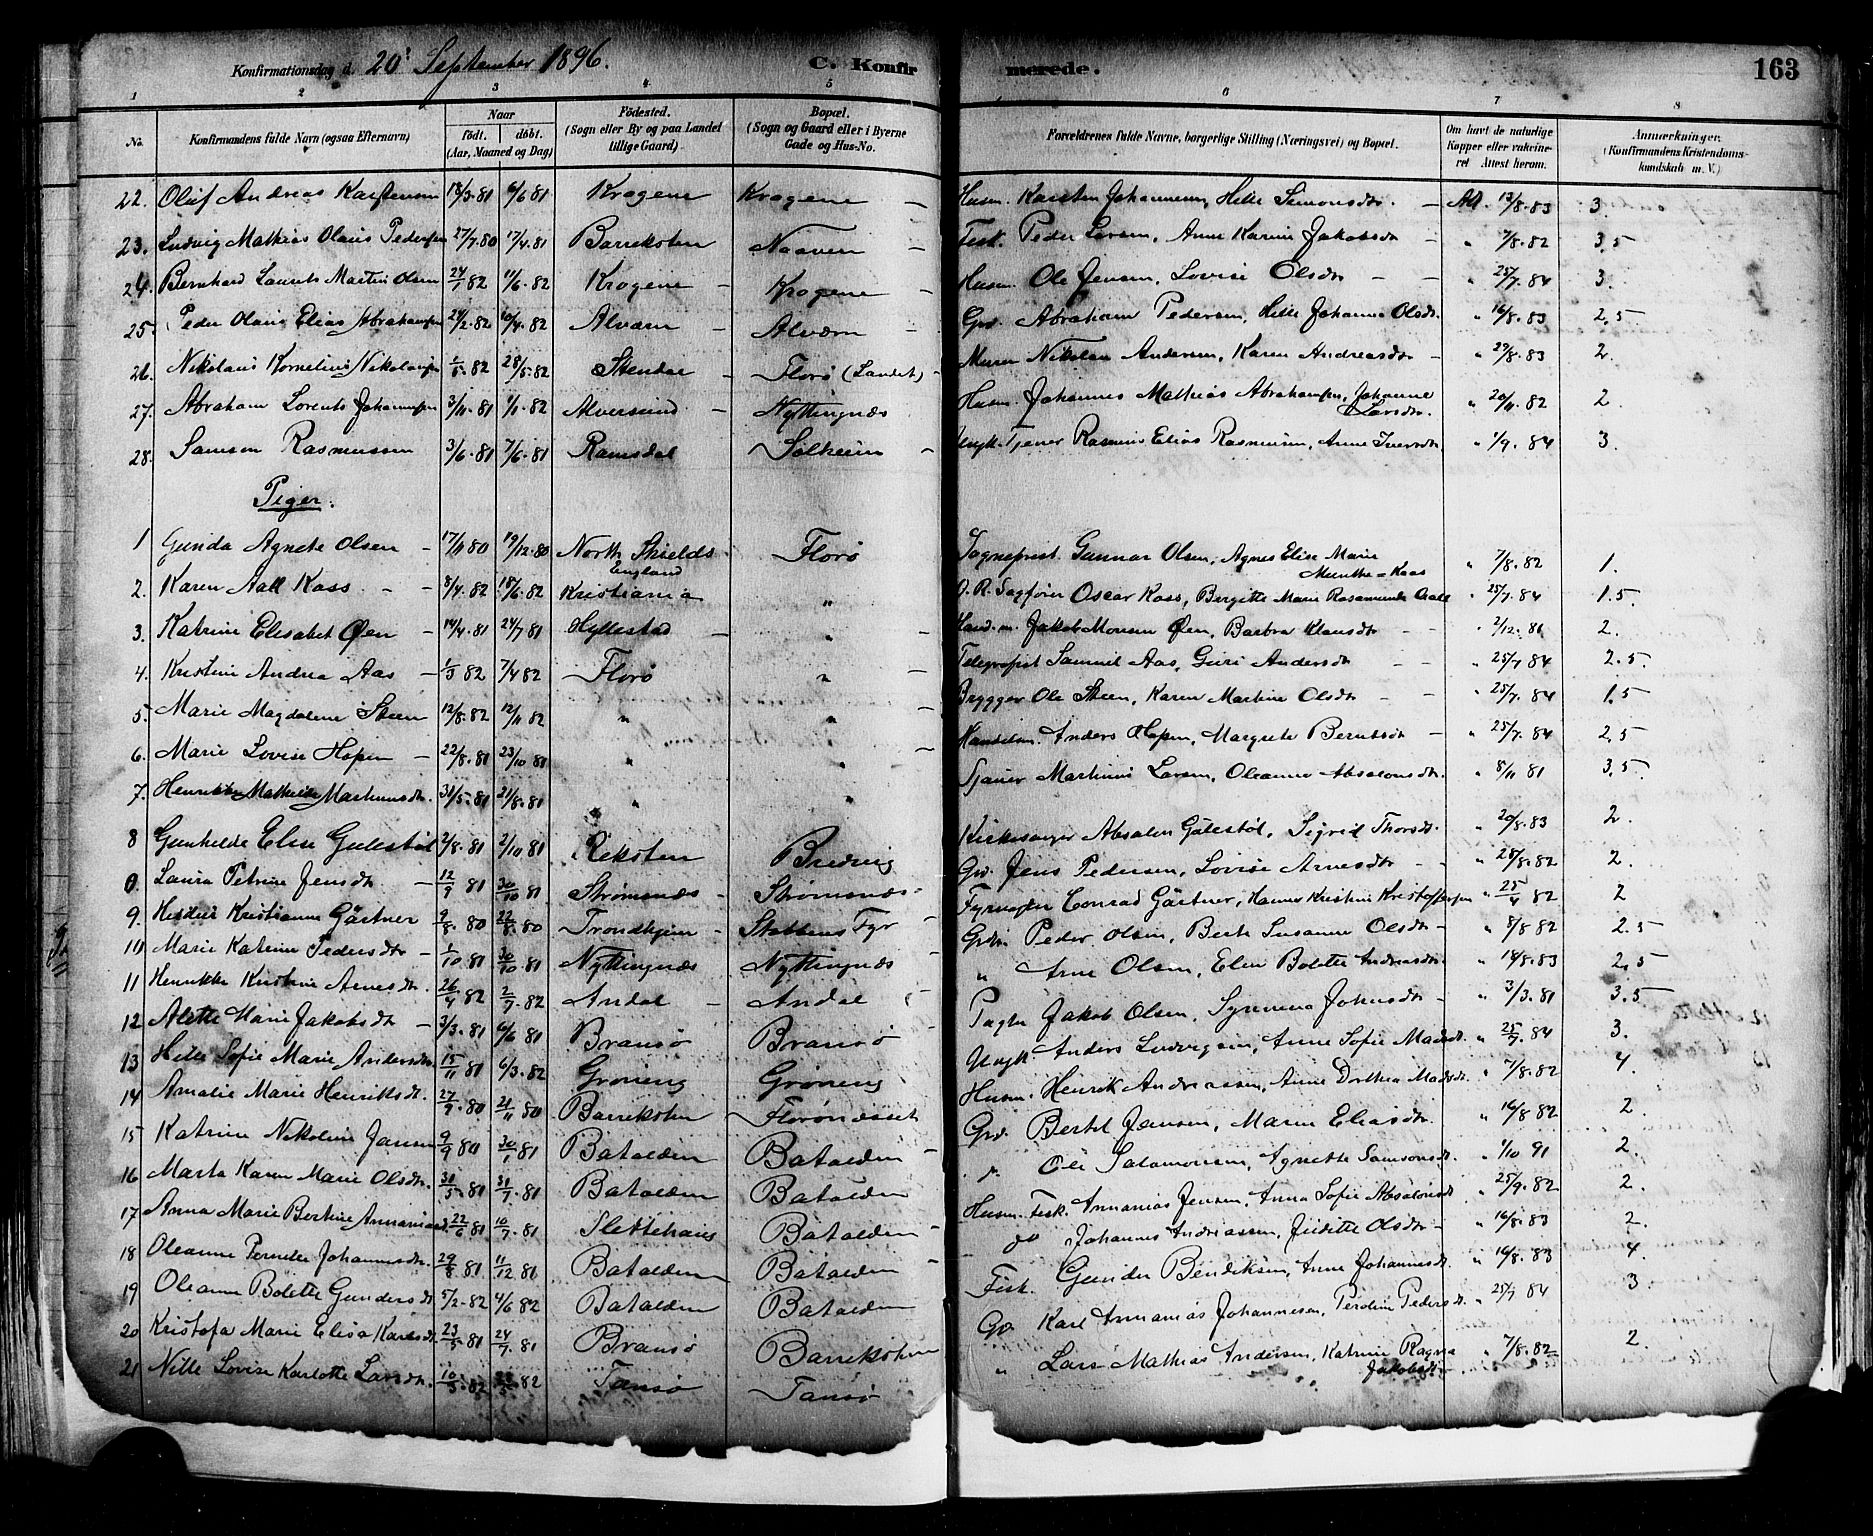 Konfirmationsdag d. 20' September 1896. C. Konfirmerede. 163
1 2 3 4 5 6 7 8
No. Konfirmandens fulde Navn (ogsaa Efternavn) Naar födt. döbt. (Aar, Maaned og Dag) Födested. (Sogn eller By og paa Landet tillige Gaard). Bopæl. (Sogn og Gaard eller i Byerne Gade og Hus-No. Forældrenes fulde Navne, borgerlige Stilling (Næringsvei) og Bopæl. Om havt de naturlige Kopper eller vakcineret. Attest herom. Anmærkninger. (Konfirmandens Kristendomskundskab m. V.)
22. Oluf Andreas Karstensen 18/3.81 6/6 81 Krogene Krogene – Husm. Karsten Johannesen, Helle Simonsdtr. Att. 13/8.83 3.
23. Ludvig Mathias Olaus Pedersen 27/7.80 17/4.81 Barreksten Naaven Fisk. Peder Larsen, Anne Karine Jakobsdtr – " 7/8.82 3,5
24. Bernhard Laurits Martin Olsen 24/1 82 11/6.82 Krogene – Krogene – Husm. Ole Jensen, Lovise Olsdtr – – " 25/7.84 3.
25. Peder Olaus Elias Abrahamsen 24/2.82 10/4.82 Alværn – Alværn Grd. Abraham Pedersen, Helle Johanna Olsdtr. " 16/8.83 2,5
26. Nikolaus Kornelius Nikolaisen 82 28/5.82 Stendal – Florø (Landet) – Murer Nikolai Andersen, Karen Andreasdtr – " 29/8.83 2.
27. Abraham Lorents Johannesen 3/11.81 1/1.82 Alversund – Nyttingnæs Husm. Johannes Mathias Abrahamsen, Johanne Larsdtr. " 20/11.82 2.
28. Samson Rasmussen 3/6.81 7/6.81 Ramsdal – Solheim – Ugift Tjener Rasmus Elias Rasmussen, Anne Iversdtr " 1/9.84 3.
Piger.
1 Gunda Agnete Olsen – 17/11 80 19/12.80 North Shields England – Florø Sognepræst. Gunnar Olsen, Agnes Elise Marie Munthe=Kaas " 7/8.82 1.
2. Karen Aall Kass – – 8/4.82 18/6.82 Kristiania " O. R. Sagfører Oscar Kass, Birgitte Marie Rosamunda Aall " 25/7.84 1.5.
3. Katrine Elisabet Øen – 14/4.81 24/7 81 Hyllestad – " – Hand.m. Jakob Monsen Øen, Barbra Klausdtr – – " 2/12.81 2.
4. Kristine Andrea Aas – 1/3 82 7/4 82 Florø " – Telegrafist Samuel Aas, Guri Andersdtr – – " 25/7 84 2.5.
5. Marie Magdalene Steen 12/8.82 12/11 82 " " – Brygger Ole Steen, Karen Martine Olsdtr – – " 25/7.84 1,5
6. Marie Lovise Hopen – 22/8.81 23/10 81 " " – Handelsm. Anders Hopen, Margrete Berntsdtr – " 25/7.84 2,5
7. Henrikke Mathilde Martinusdtr. 31/5.81 21/8.81 " " Sjauer Martinus Larsen, Oleanna Absalonsdtr. " 8/11 81 3,5.
8 Gunhilde Elise Gulestøl 2/8.81 2/10 81 Reksten Bredvig Kirkesanger Absalon Gulestøl, Sigrid Thorsdtr. " 20/8.83 2.
0. Laura Petrine Jensdtr. – 12/9 81 30/10 81 Strømsnæs – Strømsnæs – Grd. Jens Pedersen, Lovise Arnesdtr – – " 28/8.82 2.
9. Kristianna Gärtner 9/8.80 22/8.80 Trondhjem – Stabbens Fyr Fyrvogter Conrad Gärtner, Hanna Kristine Kristoffersen " 25/4 82 2
10. Marie Katrine Pedersdtr – 1/10 81 30/10 81 Nyttingnæs Nyttingnæs Grdm. Peder Olsen, Berte Susanne Olsdtr – " 8/8 82 2.5
11 Henrikke Kristine Arnesdtr. 26/4 82 2/7.82 Andal – Andal " Arne Olsen, Elen Bolette Andreasdtr. " 18/8.83 2,5
12. Alette Marie Jakobsdtr – 3/3.81 6/6 81 Bransø Bransø Jakob Olsen, Syneva Johnsdtr – " 3/3.81 3.5
13 Helle Sofie Marie Andersdtr 15/11 81 6/3.82 Grøneng Grøneng Ugft. Anders Ludvigsen, Anne Sofie Madsdtr. " 25/7.84 3.
14 Amalie Marie Henriksdtr. 27/9.80 21/11 80 Barreksten – Florønesset Husm. Henrik Andreassen, Anne Dorthea Madsdtr. " 7/8.82 4.
15 Katrine Nikoline Jansen 9/9 80 30/1.81 Batalden Batalden – Grd. Bertel Jansen, Maren Eliasdtr. " 16/8 82 2.
16 Marta Karen Marie Olsdtr. 31/5.81 31/7.81 Batalden Batalden Ole Salamonsen, Agnette Samsonsdtr. " 1/10 91 2.
17. Anna Marie Bertine Annaniasd. 22/6 81 10/7.81 Slettehaug Batalden Husm. Fisk. Annanias Jensen, Anna Sofie Absalonsdtr " 25/9.82 2.
18 Oleanne Pernille Johannesdtr. 29/8 81 11/12 81 Batalden Batalden do Johannes Andreassen, Juditte Olsdtr – " 16/8.83 2.
19 Oleanne Bolette Gundersdtr 5/2.82 4/6 82 Batalden Batalden Fisk. Gunder Bendiksen, Anne Johannesdtr. " 16/8.83 4.
20 Kristofa Marie Elisa Karlsdtr. 23/5 81 24/7.81 Bransø Barreksten Gd. Karl Annanias Johannesen, Peroline Pedersdtr. " 25/7 84 3
21 Nille Lovise Karlotte Larsdtr. 10/3.82 82 Tansø Tansø " Lars Mathias Andersen, Katrine Ragna Jakobsdtr. " 7/8.82 2.